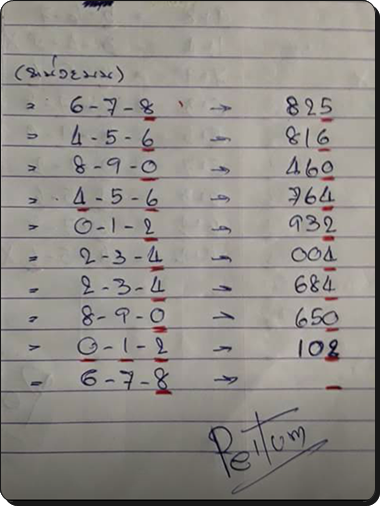 (หน่วยบน)
= 6-7-8 → 825
= 4-5-6 → 816
= 8-9-0 → 460
= 4-5-6 → 764
= 0-1-2 → 932
= 2-3-4 → 004
= 2-3-4 → 684
= 8-9-0 → 650
= 0-1-2 → 102
= 6-7-8 → _